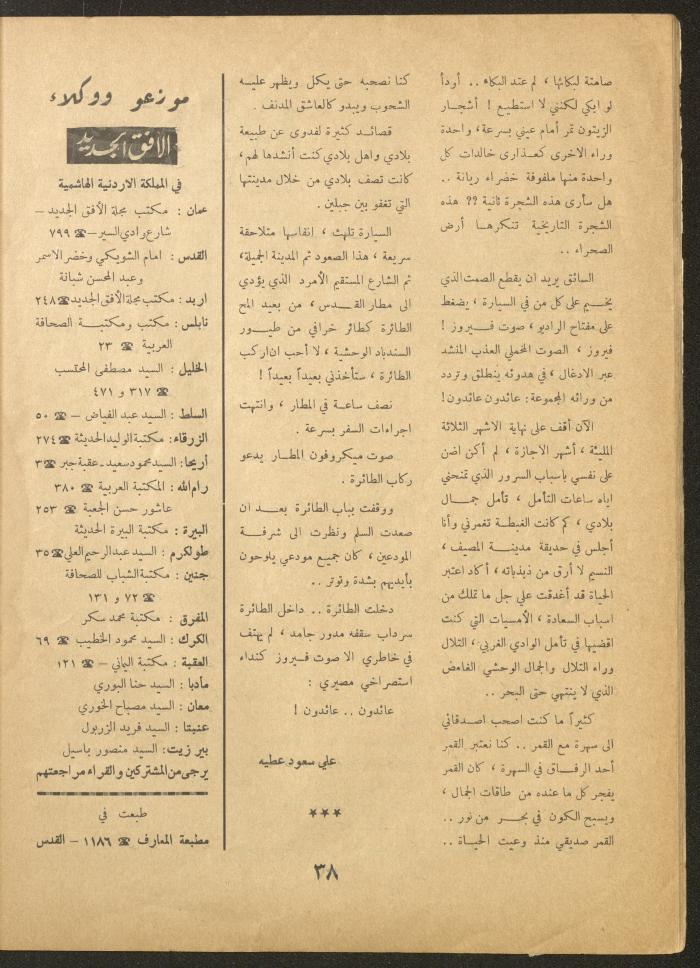 صامتة لبكائها ، لم عتد البكاء .. أودأ
لو ابكي لكنني لا استطيع ! أشجار
الزيتون تمر أمام عيني بسرعة ، واحدة
وراء الاخرى كعذارى خالدات كل
واحدة منها ملفوفة خضراء ريانة ..
هل سأرى هذه الشجرة ثانية ؟؟ هذه
الشجرة التاريخية تنكرها أرض
الصحراء ..
السائق يريد ان يقطع الصمت الذي
يخيم على كل من في السيارة ، يضغط
على مفتاح الراديو ، صوت فيروز !
فيروز ، الصوت المخملي العذب المنشد
عبر الادغال ، في هدوئه ينطلق وتردد
من ورائه المجموعة : عائدون عائدون !
الآن أقف على نهاية الاشهر الثلاثة
المليئة ، أشهر الاجازة ، لم أكن اضن
على نفسي باسباب السرور الذي تمنحني
اياه ساعات التأمل ، تأمل جمال
بلادي ، كم كانت الغبطة تغمرني وأنا
أجلس في حديقة مدينة المصيف ،
النسيم لا أرق من ذبذباته ، أكاد اعتبر
الحياة قد أغدقت علي جل ما تملك من
اسباب السعادة ، الأمسيات التي كنت
اقضيها في تأمل الوادي الغربي ، التلال
وراء التلال والجمال الوحشي الغامض
الذي لا ينتهي حتى البحر ..
كثيراً ما كنت اصحب اصدقائي
الى سهرة مع القمر .. كنا نعتبر القمر
أحد الرفاق في السهرة ، كان القمر
يفجر كل ما عنده من طاقات الجمال ،
ويسبح الكون في بحر من نور ..
القمر صديقي منذ وعيت الحياة ..
كنا نصحبه حتى يكل ويظهر عليه
الشحوب ويبدو كالعاشق المدنف .
قصائد كثيرة لفدوى عن طبيعة
بلادي واهل بلادي كنت أنشدها لهم ،
كانت تصف بلادي من خلال مدينتها
التي تغفو بين جبلين .
السيارة تلهث ، انفاسها متلاحقة
سريعة ، هذا الصعود ثم المدينة الجميلة ،
ثم الشارع المستقيم الأمرد الذي يؤدي
الى مطار القدس ، من بعيد المح
الطائرة كطائر خرافي من طيور
السندباد الوحشية ، لا أحب ان اركب
الطائرة ، ستأخذني بعيداً بعيداً !
نصف ساعة في المطار ، وانتهت
اجراءات السفر بسرعة .
صوت ميكروفون المطار يدعو
ركاب الطائرة .
ووقفت بباب الطائرة بعد ان
صعدت السلم ونظرت الى شرفة
المودعين ، كان جميع مودعي يلوحون
بأيديهم بشدة وتوتر ..
دخلت الطائرة .. داخل الطائرة
سرداب سقفه مدور جامد ، لم يهتف
في خاطري الا صوت فيروز كنداء
استصراخي مصيري :
عائدون .. عائدون !
علي سعود عطيه
***
موزعو ووكلاء
الأفق الجديد
في المملكة الاردنية الهاشمية
عمان : مكتب مجلة الأفق الجديد –
شارع وادي السير – ☎ ٧٩٩
القدس : امام الشويكي وخضر الاسمر
وعبد المحسن شبانة
اربد : مكتب مجلة الأفق الجديد ☎ ٢٤٨
نابلس : مكتب ومكتبة الصحافة
العربية ☎ ٢٣
الخليل : السيد مصطفى المحتسب
☎ ٣١٧ و ٤٧١
السلط : السيد عبد الفياض – ☎ ٥٠
الزرقاء : مكتبة الوليد الحديثة ☎ ٢٧٤
أريحا : السيد محمود سعيد ـ عقبة جبر ☎ ٣
رام الله : المكتبة العربية ☎ ٣٨٠
عاشور حسن الجعبة ☎ ٢٥٣
البيرة : مكتبة البيرة الحديثة
طولكرم : السيد عبد الرحيم العلي ☎ ٣٥
جنين : مكتبة الشباب للصحافة
☎ ٧٢ و ١٣١
المفرق : مكتبة محمد سكر
الكرك : السيد محمود الخطيب ☎ ٦٩
العقبة : مكتبة اليماني – ☎ ١٢١
مأدبا : السيد حنا البوري
معان : السيد مصباح الخوري
عنبتا : السيد فريد الزربول
بير زيت : السيد منصور باسيل
يرجى من المشتركين والقراء مراجعتهم
طبعت في
مطبعة المعارف ☎ ١١٨٦ – القدس
٣٨